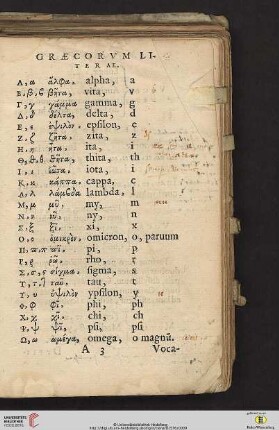 GRÆCORVM LI-
TERAE.
Α, α ἄλφα. alpha, a
Β, β, ϐ βῆτα, vita, v
Γ, γ γάμμα gamma, g
Δ, δ δέλτα, delta, d
Ε, ε ἐψιλόν, epsilon, e
Ζ, ζ ζῆτα, zita, z
Η, η ἦτα, ita, i
Θ, θ, ϑ θῆτα, thita, th
Ι, ι ἰῶτα, iota, i
Κ, κ κάππα. cappa, c
Λ, λ λάμβδα lambda, l
Μ, μ μῦ. my, m
Ν, ν νῦ, ny, n
Ξ, ξ ξῖ. xi, x
Ο, ο ὀμικρόν, omicron, o, paruum
Π, π, ϖ πῖ. pi, p
Ρ, ρ ῥῶ. rho, r
Σ, σ, ς σίγμα. sigma, s
Τ, τ, ταῦ. tau, t
Υ, υ ὐψιλόν ypsilon, y
Φ, φ φῖ. phi, ph
Χ, χ χῖ. chi, ch
Ψ, ψ ψῖ. psi, psi
Ω, ω ὠμέγα, omega, o magnū.
A 3 Voca-
UNIVERSITÄTS-
BIBLIOTHEK
HEIDELBERG
© Universitätsbibliothek Heidelberg